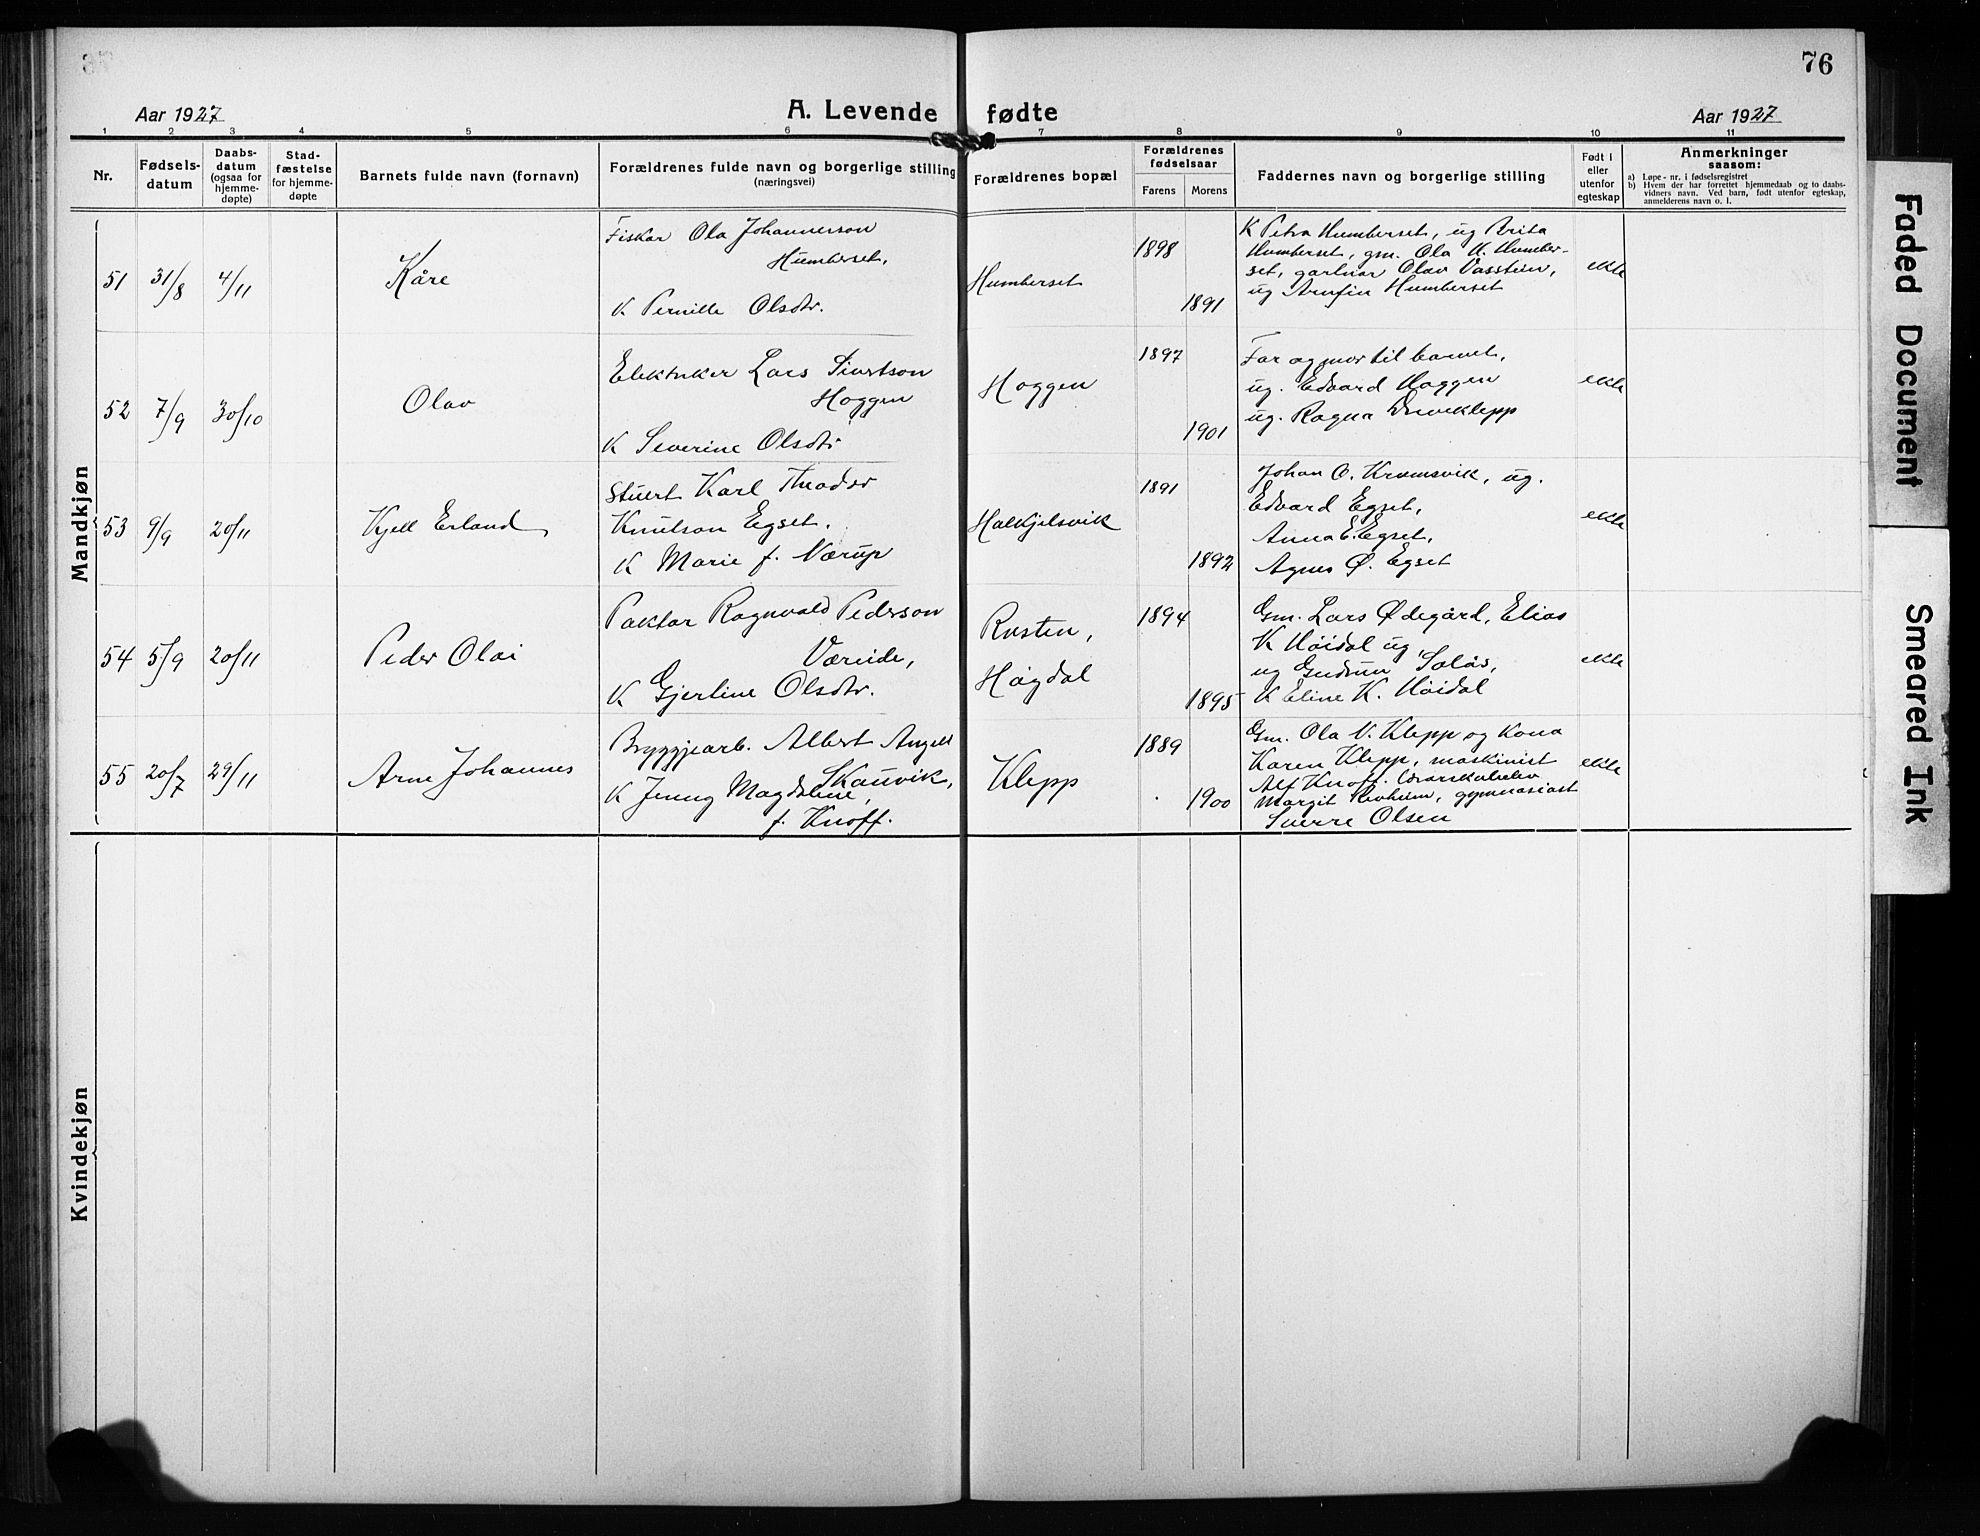 76
Aar 1927
A. Levende fødte
Aar 1927
1 2 3 4 5 6 7 8 9 10 11
Nr.
Fødsels-
datum
Daabs-
datum
(ogsaa for
hjemme-
døpte)
Stad-
fæstelse
for hjemme-
døpte
Barnets fulde navn (fornavn)
Forældrenes fulde navn og borgerlige stilling
(næringsvei)
Forældrenes bopæl
Forældrenes
fødselsaar
Farens
Morens
Faddernes navn og borgerlige stilling
Født i
eller
utenfor
egteskap
Anmerkninger
saasom:
a) Løpe-nr. i fødselsregistret
b) Hvem der har forrettet hjemmedaab og to daabs-
vidners navn. Ved barn, født utenfor egteskap,
anmelderens navn o. l.
Mandkjøn
51 31/8 4/11 Kåre
Fiskar Ola Johannesson
Humberset,
K Pernille Olsdtr.
Humberset
1898
1891
K Petra Humberset, ug Brita
Humberset, gm. Ola H. Humber-
set, gartnar Olav Vasstein,
ug Arnfin Humberset
ekte
52 7/9 30/10 Olav
Elektriker Lars Sivertson
Hoggen
K Severine Olsdtr
Hoggen
1897
1901
Far og mor til barnet,
ug. Edvard Hoggen
ug. Ragna Driveklepp
ekte
53 9/9 20/11 Kjell Erland
Stuert Karl Theodor
Knutson Egset.
K Marie f. Nærup
Halkjelsvik
1891
1892
Johan O. Krumsvik, ug.
Edvard Egset,
Anna E. Egset,
Agnes Ø. Egset
ekte
54 5/9 20/11 Peder Olai
Paktar Ragnvald Pederson
Væreide,
K Gjertine Olsdtr.
Rusten,
Høgdal
1894
1895
Gm. Lars Ødegård, Elias
K Høidal ug
ug Gudrun Solås,
K Eline K. Høidal
ekte
55 20/7 29/11 Arne Johannes
Bryggjearb. Albert Angell
Skauvik,
K Jenny Magdalene,
f. Knoff.
Klepp
1889
1900
Gm. Ola V. Klepp og kona
Karen Klepp, maskinist
Alf Knoff.
Margit, gymnasiast
Sverre Olsen
ekte
Kvindekjøn
Faded Document
Smeared Ink